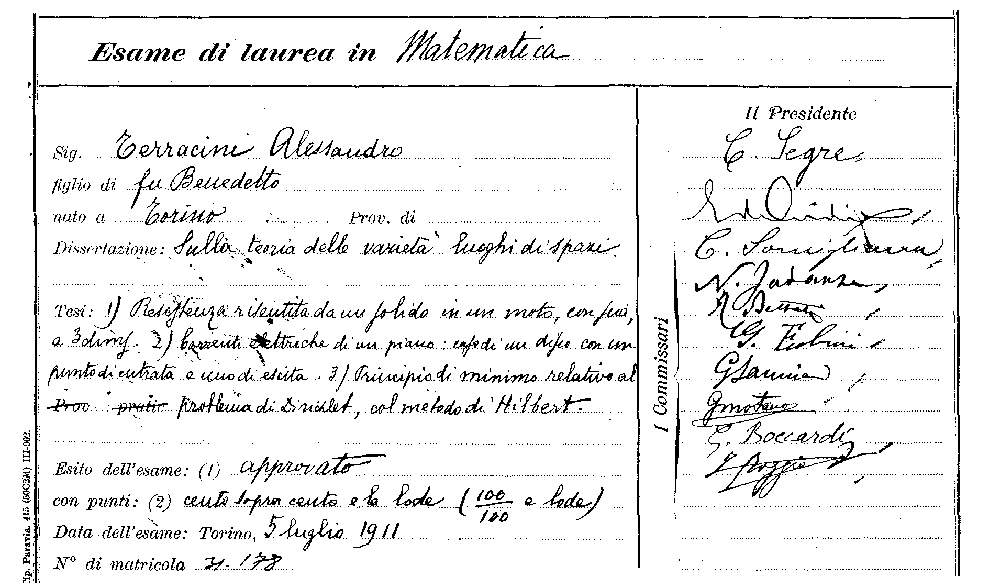 Esame di laurea in Matematica
Il Presidente
C. Segre
Sig. Terracini Alessandro
figlio di fu Benedetto
nato a Torino Prov. di
Dissertazione: Sulla teoria delle varietà luoghi di spazi
Tesi: 1) Resistenza risentita da un solido in un moto, con
a 3 dim. 2) Correnti elettriche di un piano: caso di un disco con un
punto di entrata e uno di escita. 3) Principio di minimo relativo al
Prov pratic problema di Dirichlet, col metodo di Hilbert.
I Commissari
C. Somigliana
N. Jadanza
G. Fubini
G. Boccardi
Esito dell'esame: (1) approvato
con punti: (2) cento sopra cento e la lode (100/100 e lode)
Data dell'esame: Torino, 5 luglio 1911
N° di matricola
Tip. Paravia.